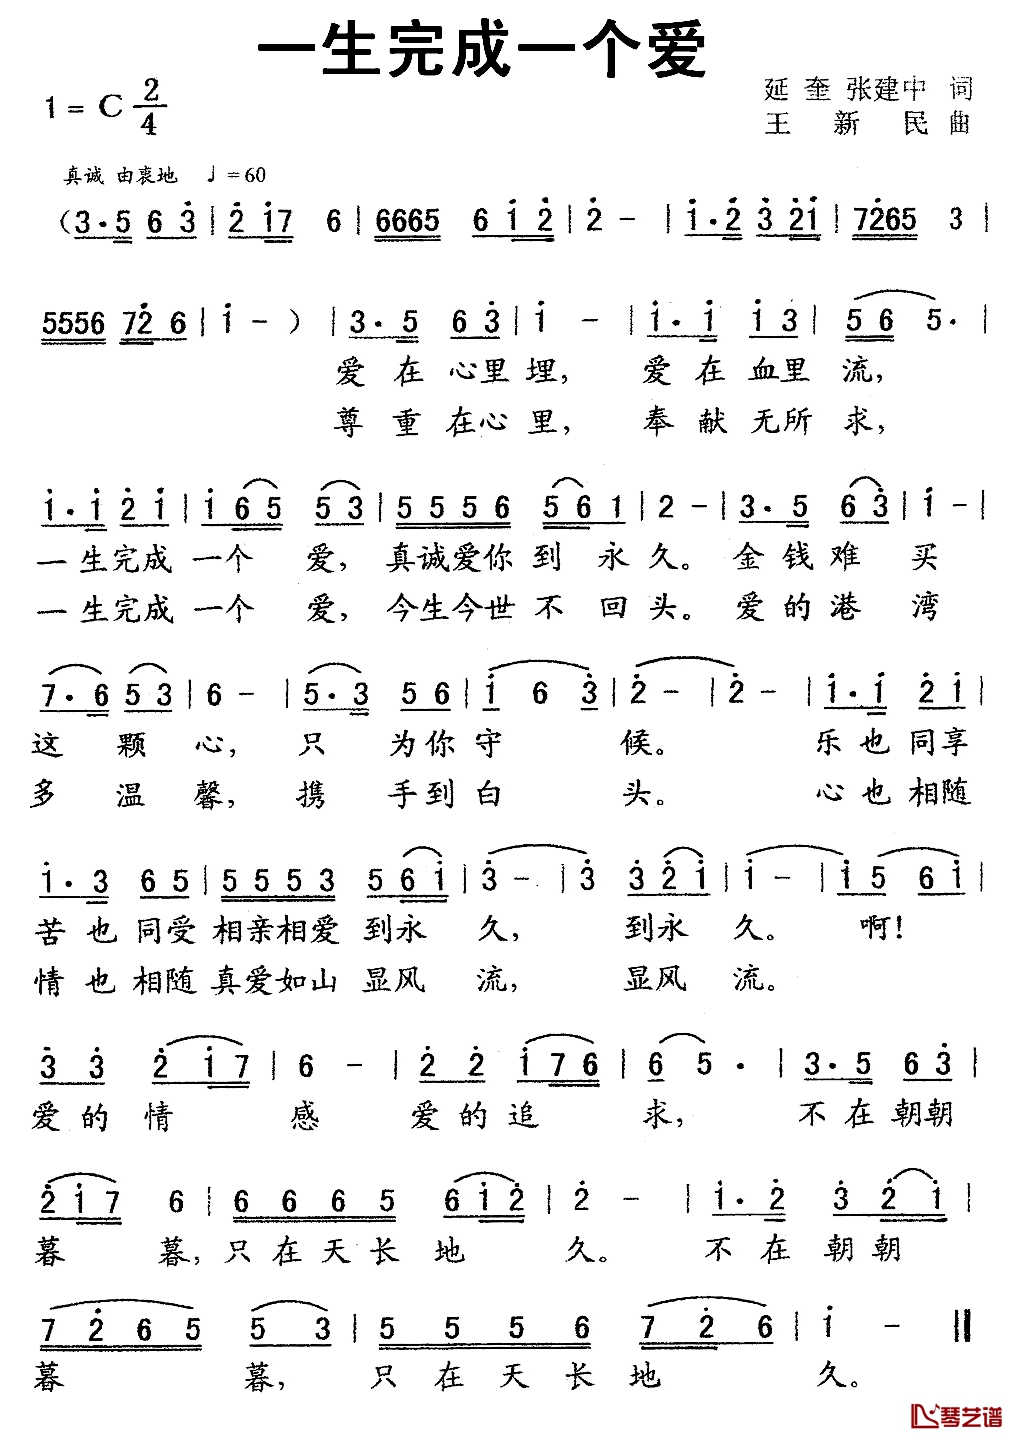 一生完成一个爱
1 = C 2/4
延 奎 张建中 词
王 新 民 曲
真诚 由衷地 ♩ = 60
（3·5 6 3 | 2 1 7 6 | 6665 6 1 2 | 2 - | 1·2 3 21 | 7265 3 |
5556 72 6 | 1 - ） | 3·5 6 3 | 1 - | 1·1 1 3 | 5 6 5· |
爱 在 心里 埋， 爱 在 血里 流，
尊 重 在心 里， 奉 献 无所 求，
1·1 2 1 | 1 6 5 5 3 | 5 5 5 6 5 6 1 | 2 - | 3·5 6 3 | 1 - |
一 生完成 一个 爱， 真诚爱你 到 永 久。 金 钱 难 买
一 生完成 一个 爱， 今生今世 不 回 头。 爱 的 港 湾
7·6 5 3 | 6 - | 5·3 5 6 | 1 6 3 | 2 - | 2 - | 1·1 2 1 |
这 颗 心， 只 为你 守 候。 乐 也 同享
多 温 馨， 携 手到 白 头。 心 也 相随
1·3 6 5 | 5 5 5 3 5 6 1 | 3 - | 3 3 2 1 | 1 - | 1 5 6 1 |
苦 也 同受 相亲相爱 到永 久， 到永 久。 啊！
情 也 相随 真爱如山 显风 流， 显风 流。
3 3 2 1 7 | 6 - | 2 2 1 7 6 | 6 5· | 3·5 6 3 |
爱 的 情 感 爱 的 追 求， 不 在 朝朝
2 1 7 6 | 6 6 6 5 6 1 2 | 2 - | 1·2 3 2 1 |
暮 暮，只 在 天 长 地 久。 不 在 朝 朝
7 2 6 5 5 3 | 5 5 5 6 7 2 6 | 1 - ‖
暮 暮， 只 在 天 长 地 久。
琴艺谱